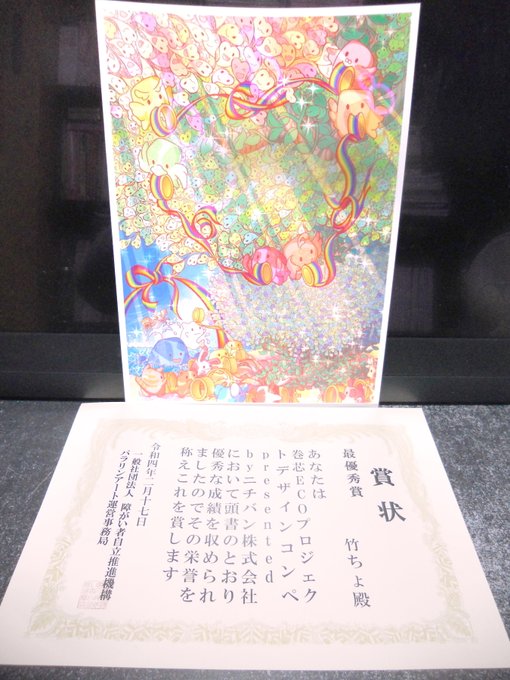 賞状
最優秀賞　竹ちょ殿
あなたは
巻芯ECOプロジェク
トデザインコンペ
presented
byニチバン株式会社
において頭書のとおり
優秀な成績を収められ
ましたのでその栄誉を
称えこれを賞します
令和四年二月十七日
一般社団法人 障がい者自立推進機構
パラリンアート運営事務局